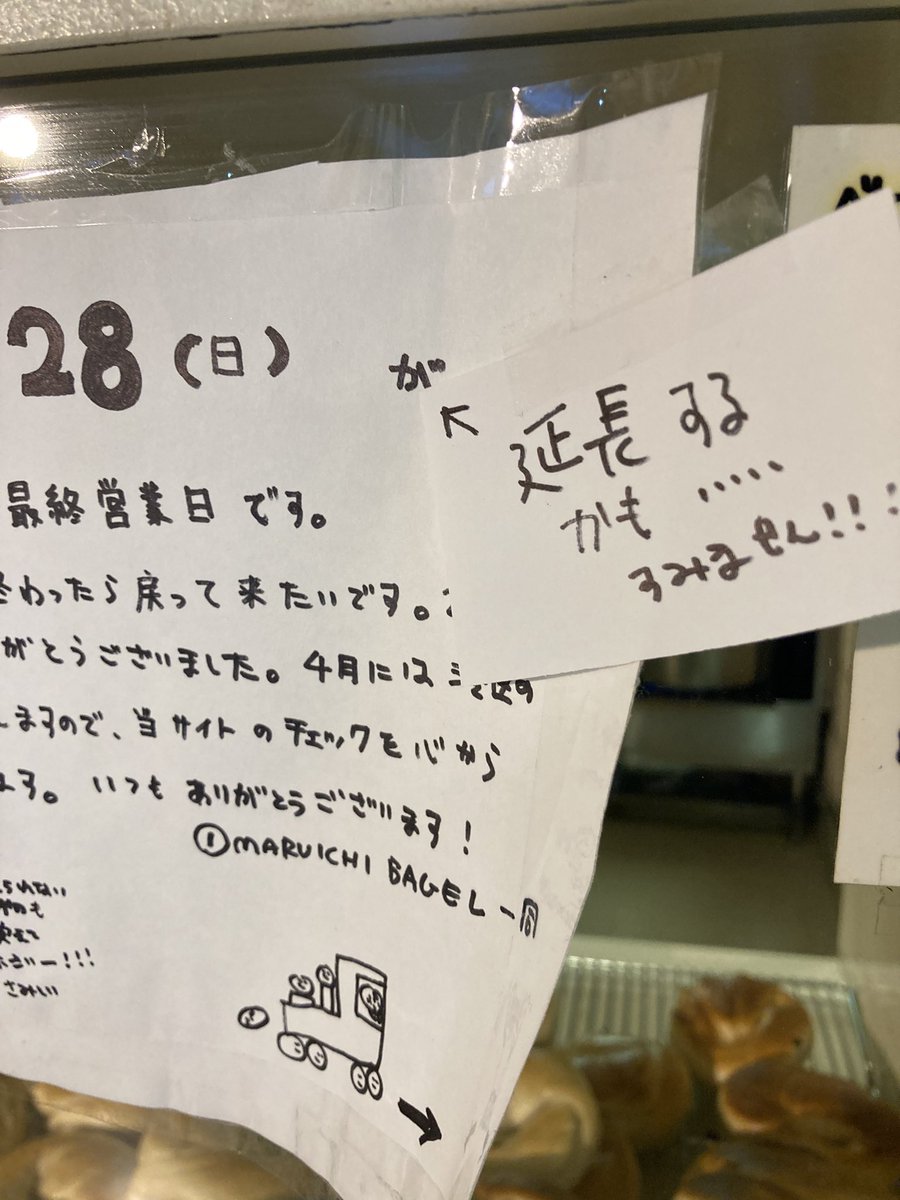 28(日) が
↖ 延長する
かも .....
すみません!!!
最終営業日です。
終わったら戻って来たいです。
がとうございました。4月には
しますので、当サイトのチェックを心から
ます。いつもありがとうございます!
①MARUICHI BAGEL一同
られない
さみしい
ベー